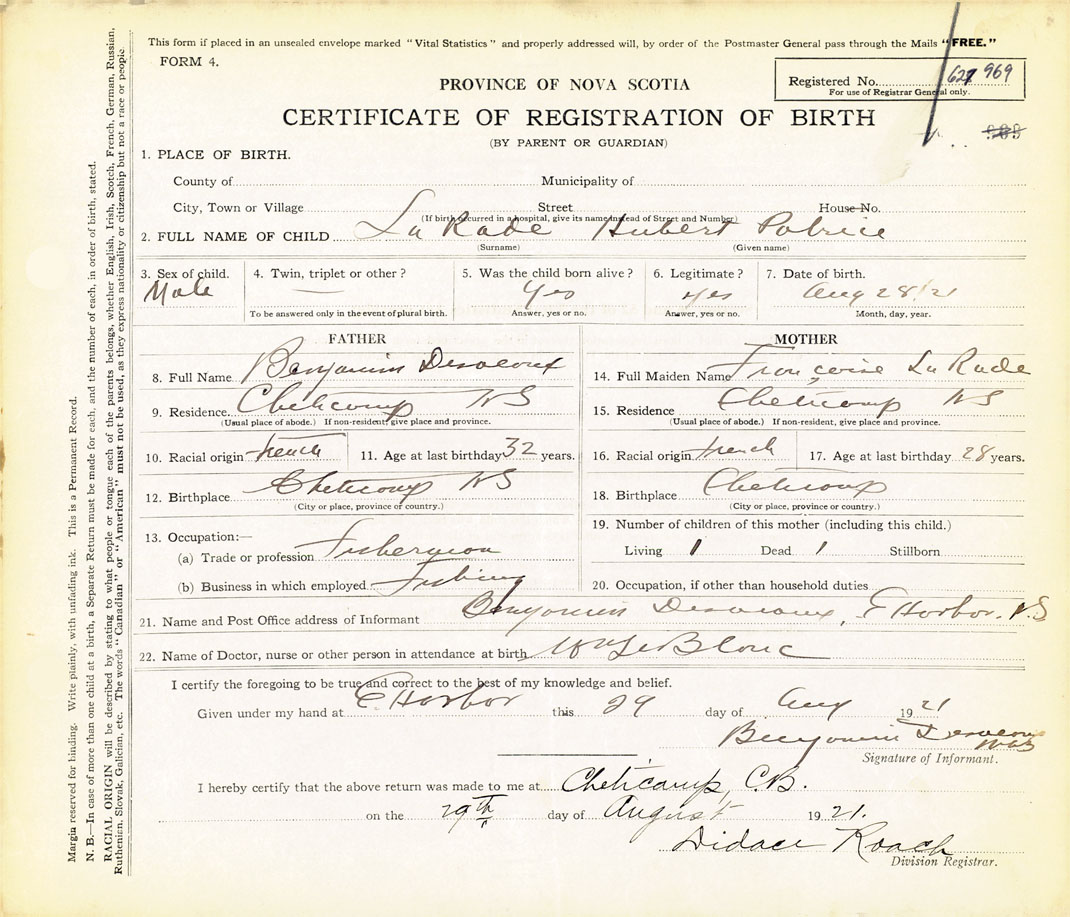 This form if placed in an unsealed envelope marked "Vital Statistics" and properly addressed will, by order of the Postmaster General pass through the Mails "FREE."
FORM 4.
Registered No. 969
For use of Registrar General only.
PROVINCE OF NOVA SCOTIA
CERTIFICATE OF REGISTRATION OF BIRTH
(BY PARENT OR GUARDIAN)
1. PLACE OF BIRTH.
County of Municipality of
City, Town or Village Street House No.
(If birth occurred in a hospital, give its name instead of Street and Number)
2. FULL NAME OF CHILD La Rade Hubert Patrice
(Surname) (Given name)
3. Sex of child. 4. Twin, triplet or other? 5. Was the child born alive? 6. Legitimate? 7. Date of birth.
Male Yes Yes Aug 28/21
To be answered only in the event of plural birth. Answer, yes or no. Answer, yes or no. Month, day, year.
FATHER MOTHER
8. Full Name Benjamin Desveaux
14. Full Maiden Name Françoise La Rade
9. Residence Cheticamp NS
15. Residence Cheticamp NS
(Usual place of abode.) If non-resident, give place and province. (Usual place of abode.) If non-resident, give place and province.
10. Racial origin French 11. Age at last birthday 32 years.
16. Racial origin french 17. Age at last birthday 28 years.
12. Birthplace Cheticamp NS
18. Birthplace Cheticamp
(City or place, province or country.) (City or place, province or country.)
13. Occupation:—
19. Number of children of this mother (including this child.)
(a) Trade or profession Fisherman
Living 1 Dead 1 Stillborn
(b) Business in which employed Fishing
20. Occupation, if other than household duties
21. Name and Post Office address of Informant Benjamin Desveaux, E Harbor, N.S
22. Name of Doctor, nurse or other person in attendance at birth Wm LeBlanc
I certify the foregoing to be true and correct to the best of my knowledge and belief.
Given under my hand at E Harbor this 29 day of Aug 1921
Benjamin Desveaux
Signature of Informant.
I hereby certify that the above return was made to me at Cheticamp, C.B.
on the 29th day of August 1921.
Didace Roach
Division Registrar.
Margin reserved for binding. Write plainly, with unfading ink. This is a Permanent Record.
N. B.—In case of more than one child at a birth, a Separate Return must be made for each, and the number of each, in order of birth, stated.
RACIAL ORIGIN will be described by stating to what people or tongue each of the parents belongs, whether English, Irish, Scotch, French, German, Russian,
Ruthenian, Slovak, Galician, etc. The words "Canadian" or "American" must not be used, as they express nationality or citizenship but not a race or people.